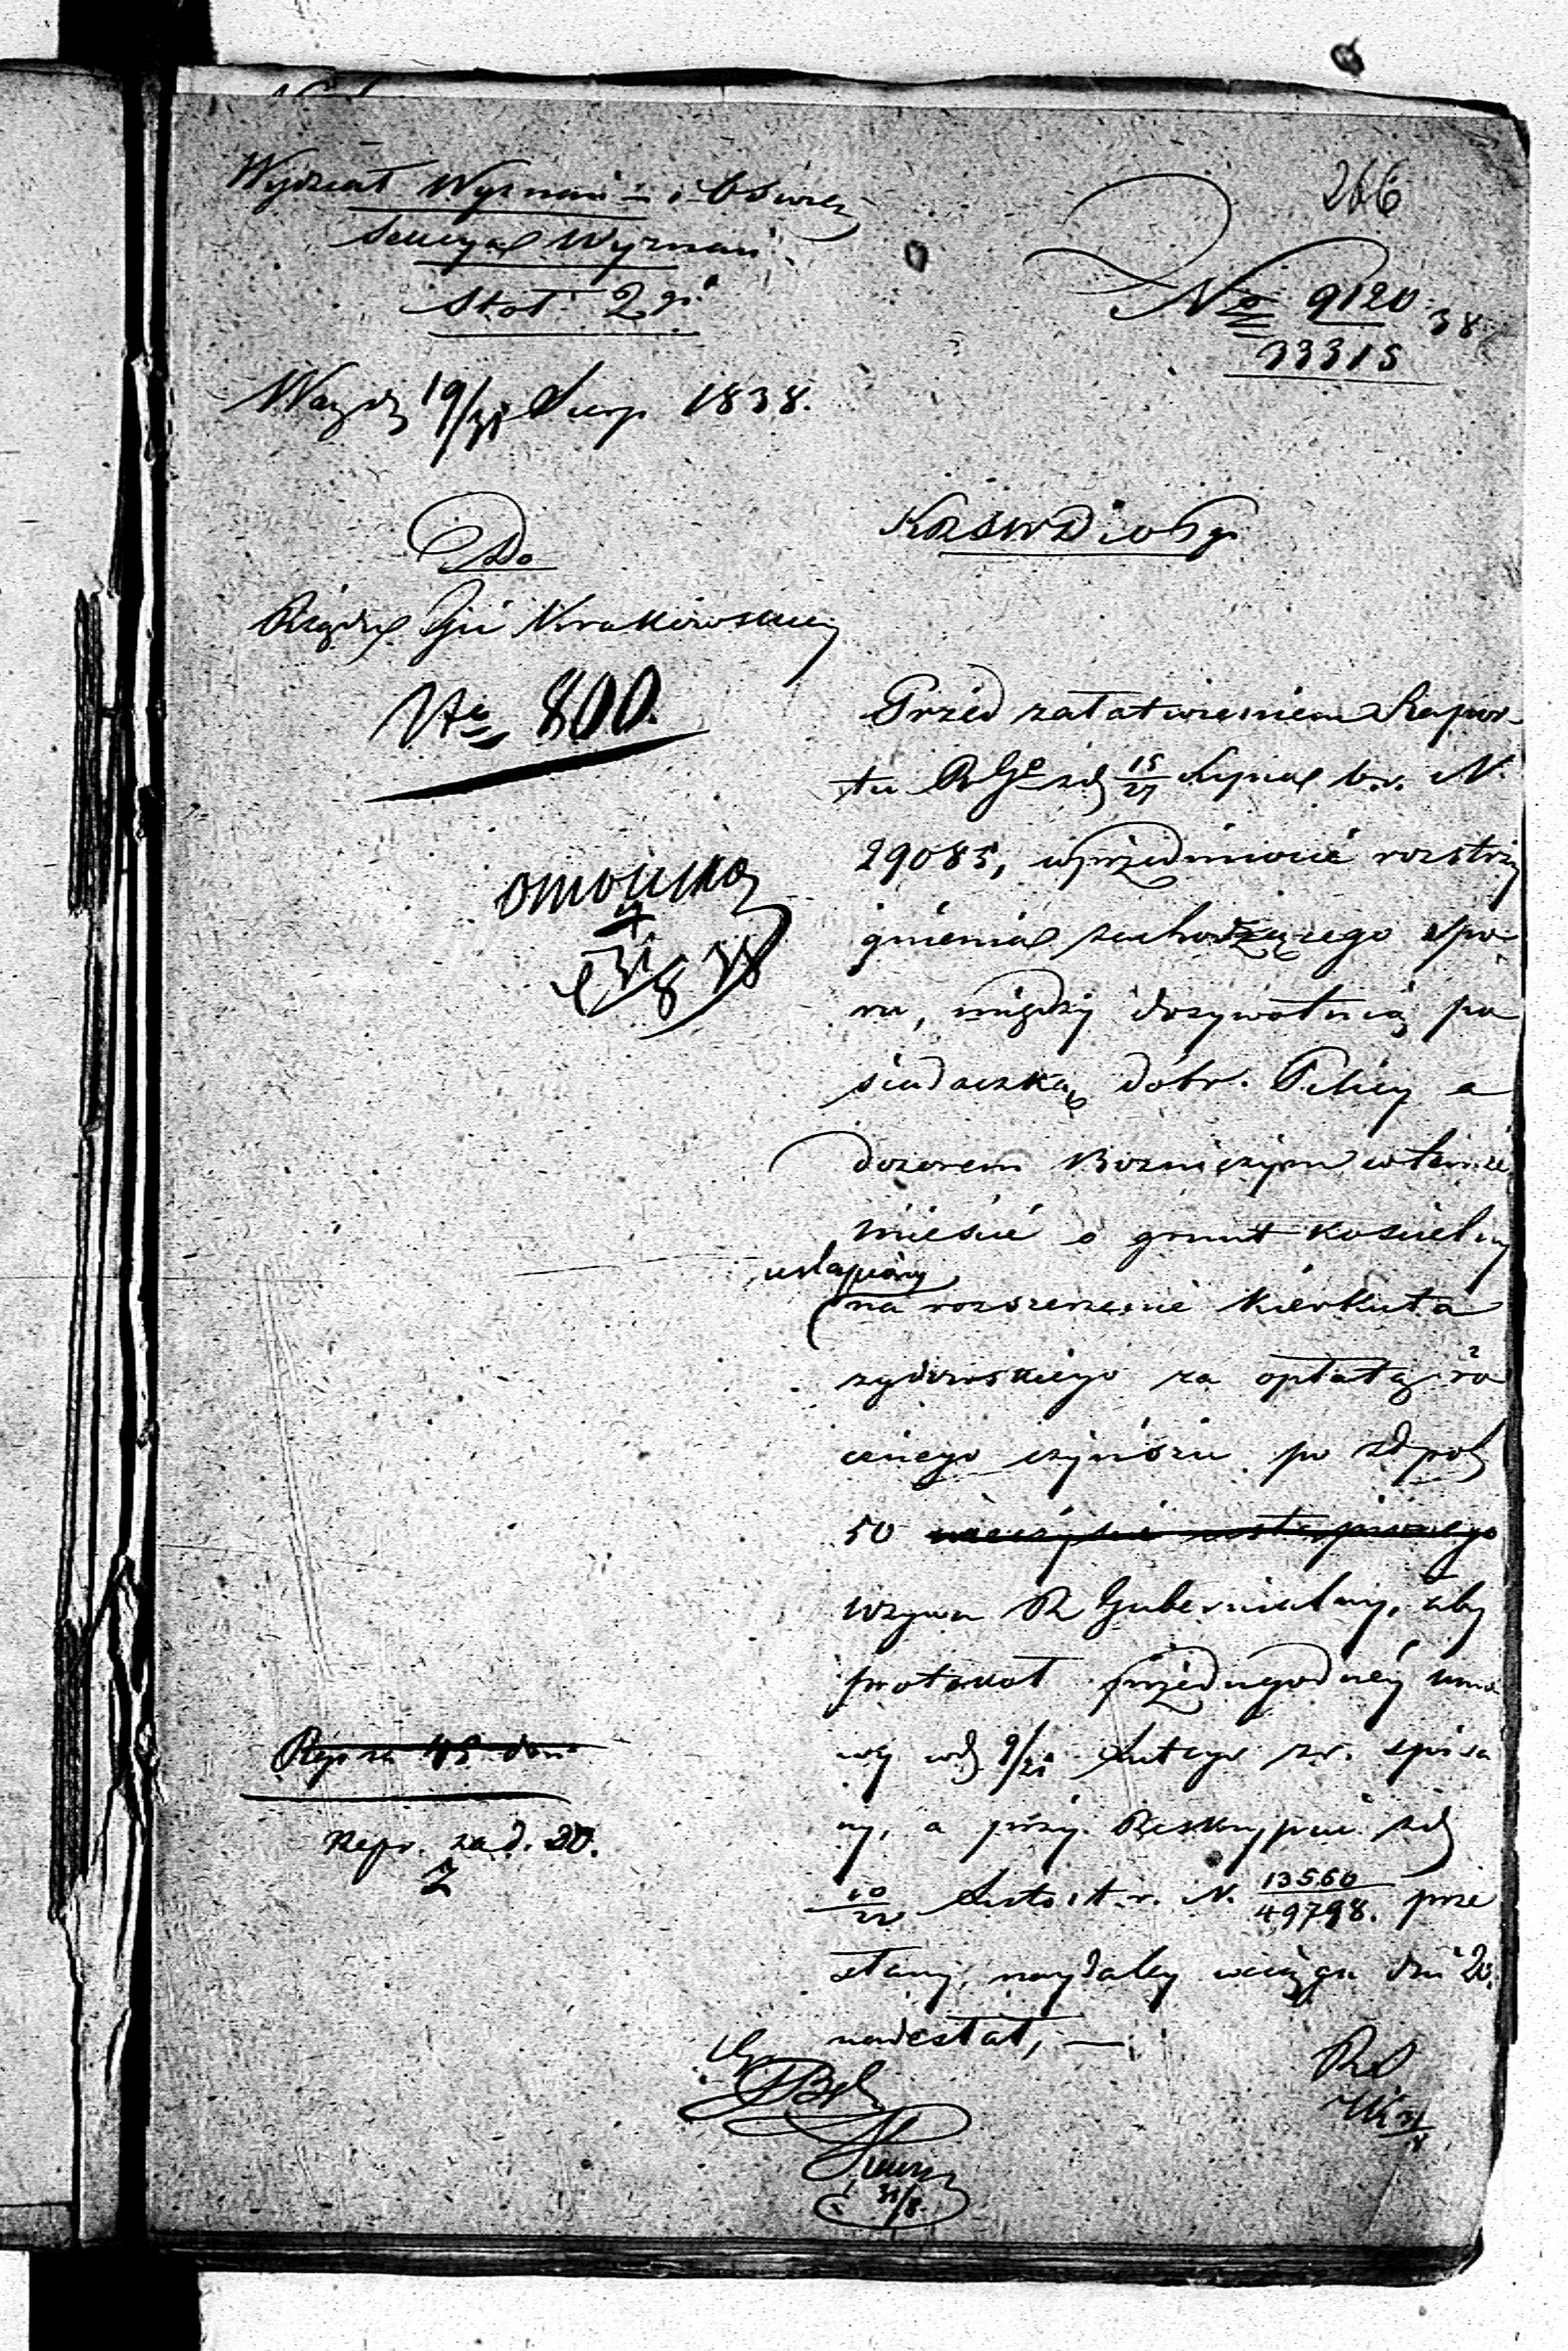 266
Wydział Wyznań i Oświec
Sekcya Wyznań
Stół 2gi
No 9120 38
13315
Warsz d 19/31 Sierp 1838.
Do
Rządu Gu Krakowskieg
No 800.
KRSWD i OP
Przed załatwieniem Rapor-
tu RGo z d 15/27 Lypca b.r. N.
29085, w przedmiocie rozstrzy
gnienia zachodzącego spo-
ru, między dożywotnią po
siadaczką dobr. Pilicy a
dozorem Bożniczym w temże
mieście o grunt kościelny
ustąpiony
na rozszerzenie kierkuta
żydowskiego za opłatą ro
cznego czynszu po złpol
50
wzywa R Gubernialny, aby
protokół przedugodney umo
wy w d 9/21 Lutego r.z. spisa
ny, a przy Reskrypcie z d
10/22 Listo t.r. N. 13560/49798. prze
słany, naydaley w ciągu dni 20.
nadesłał, —
Rep za 45 dni
Repr. za d. 20.
31/8